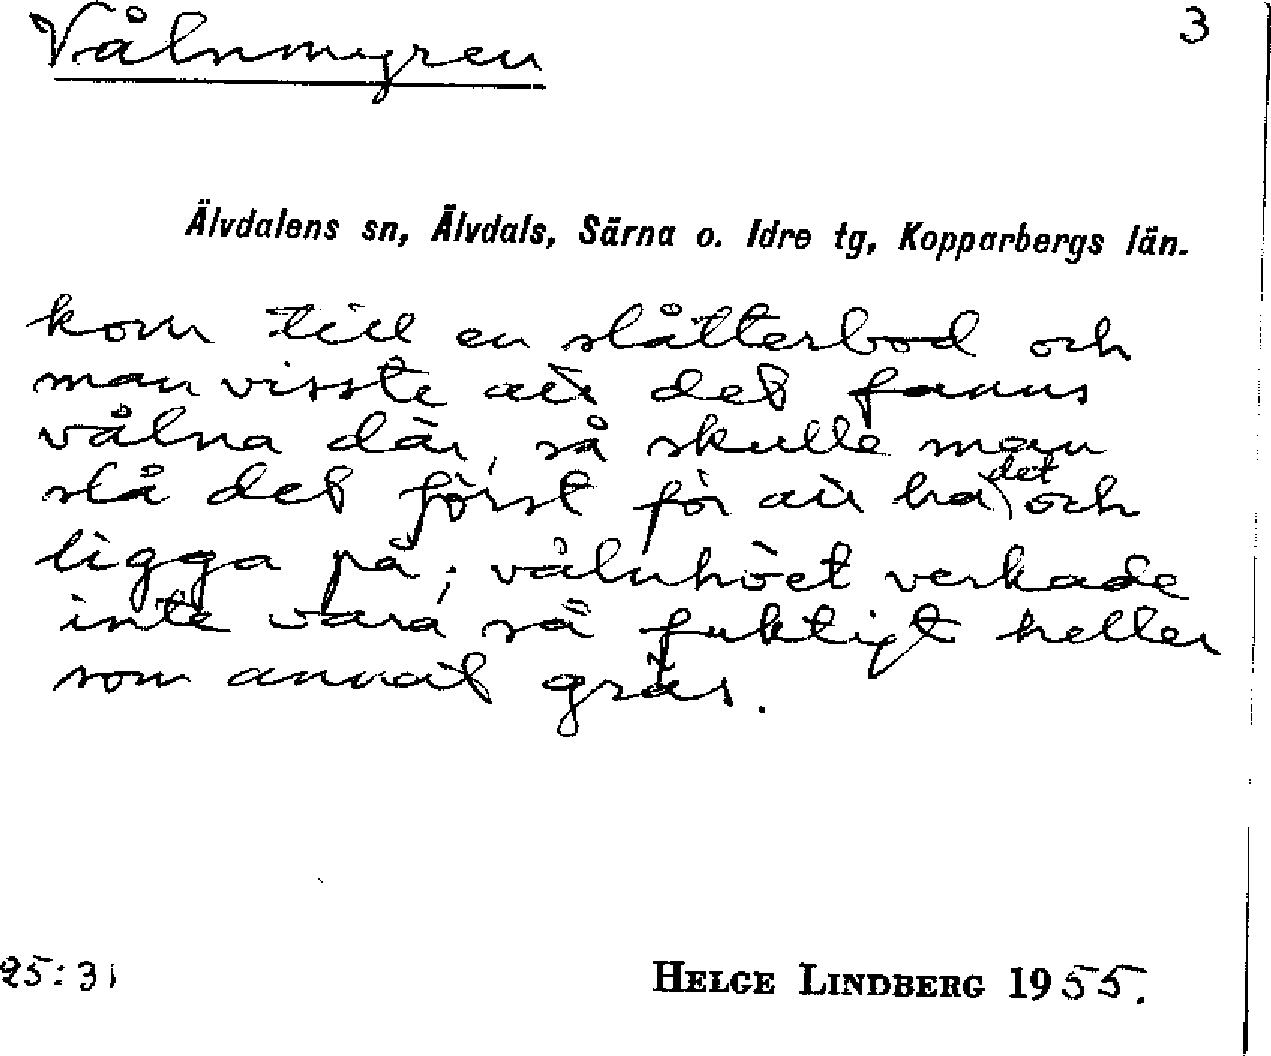 Vålnmyren
3
Älvdalens sn, Älvdals, Särna o. Idre tg, Kopparbergs län.
kom till en slåtterbod och
man visste att det fanns
vålna där, så skulle man
slå det först för att ha det och
ligga på; vålnhöet verkade
inte vara så fuktigt heller
som annat gräs.
25:31
HELGE LINDBERG 1955.